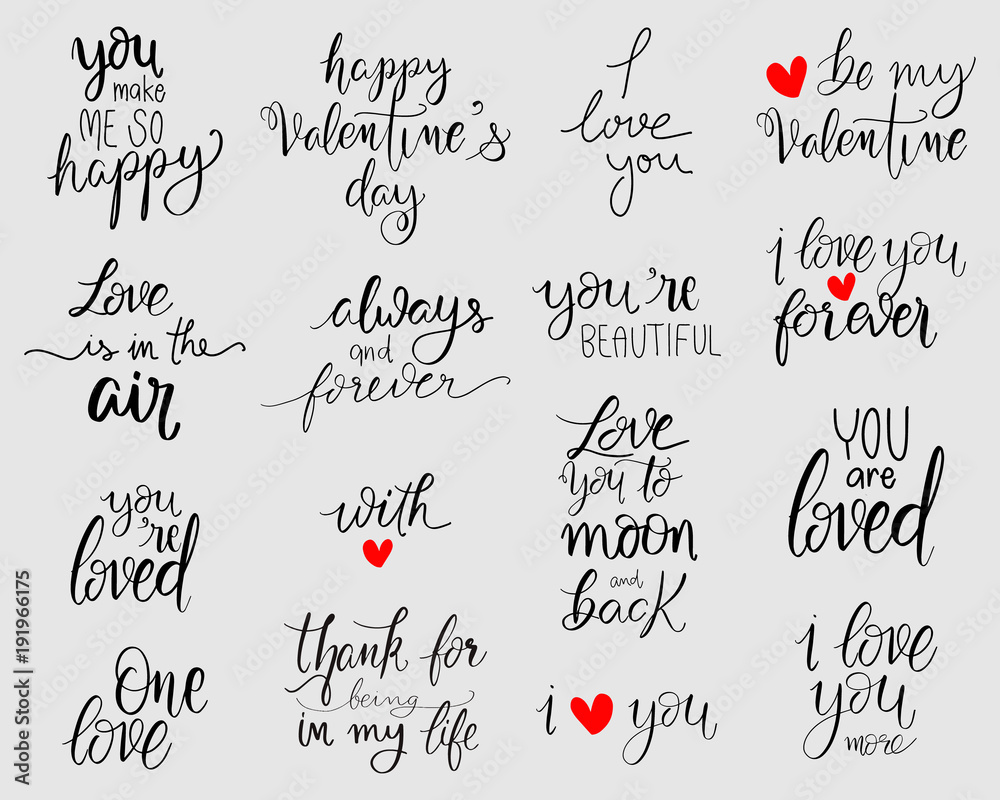 you
make
ME SO
happy
happy
Valentine's
day
I
love
you
be my
Valentine
Love
is in the
air
always
and
forever
you're
BEAUTIFUL
i love you
forever
you
're
loved
with
Love
you to
moon
and
back
YOU
are
loved
One
love
thank for
being
in my life
i you
i love
you
more
Adobe Stock | #191966175